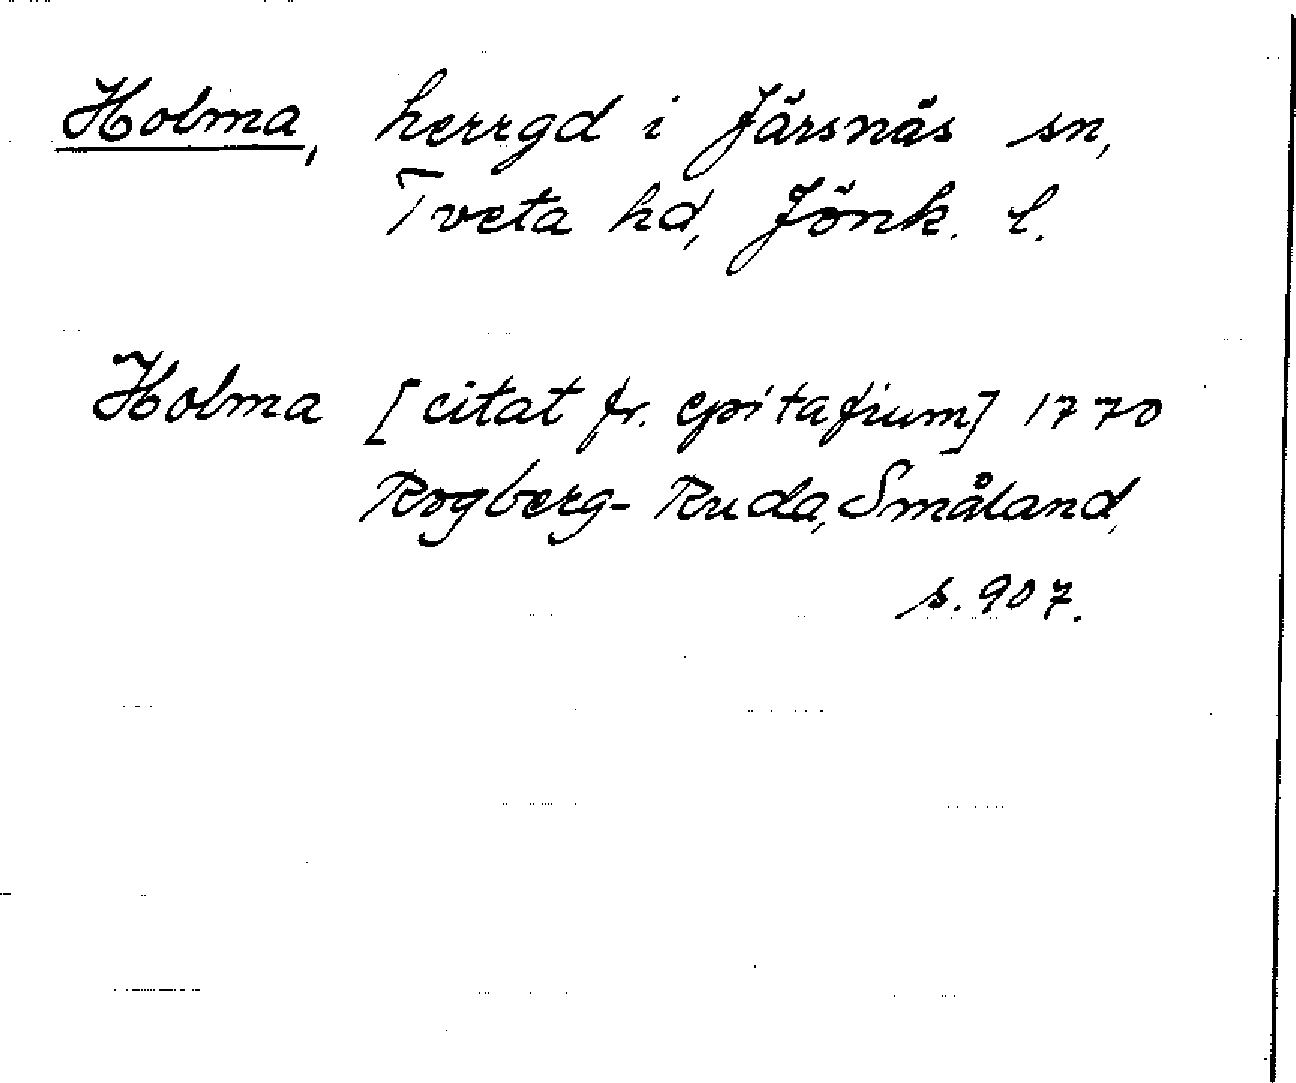 Holma, herrgd i Järsnäs sn,
Tveta hd, Jönk. l.
Holma [citat fr. epitafium] 1770
Rogberg-Ruda, Småland,
s. 907.